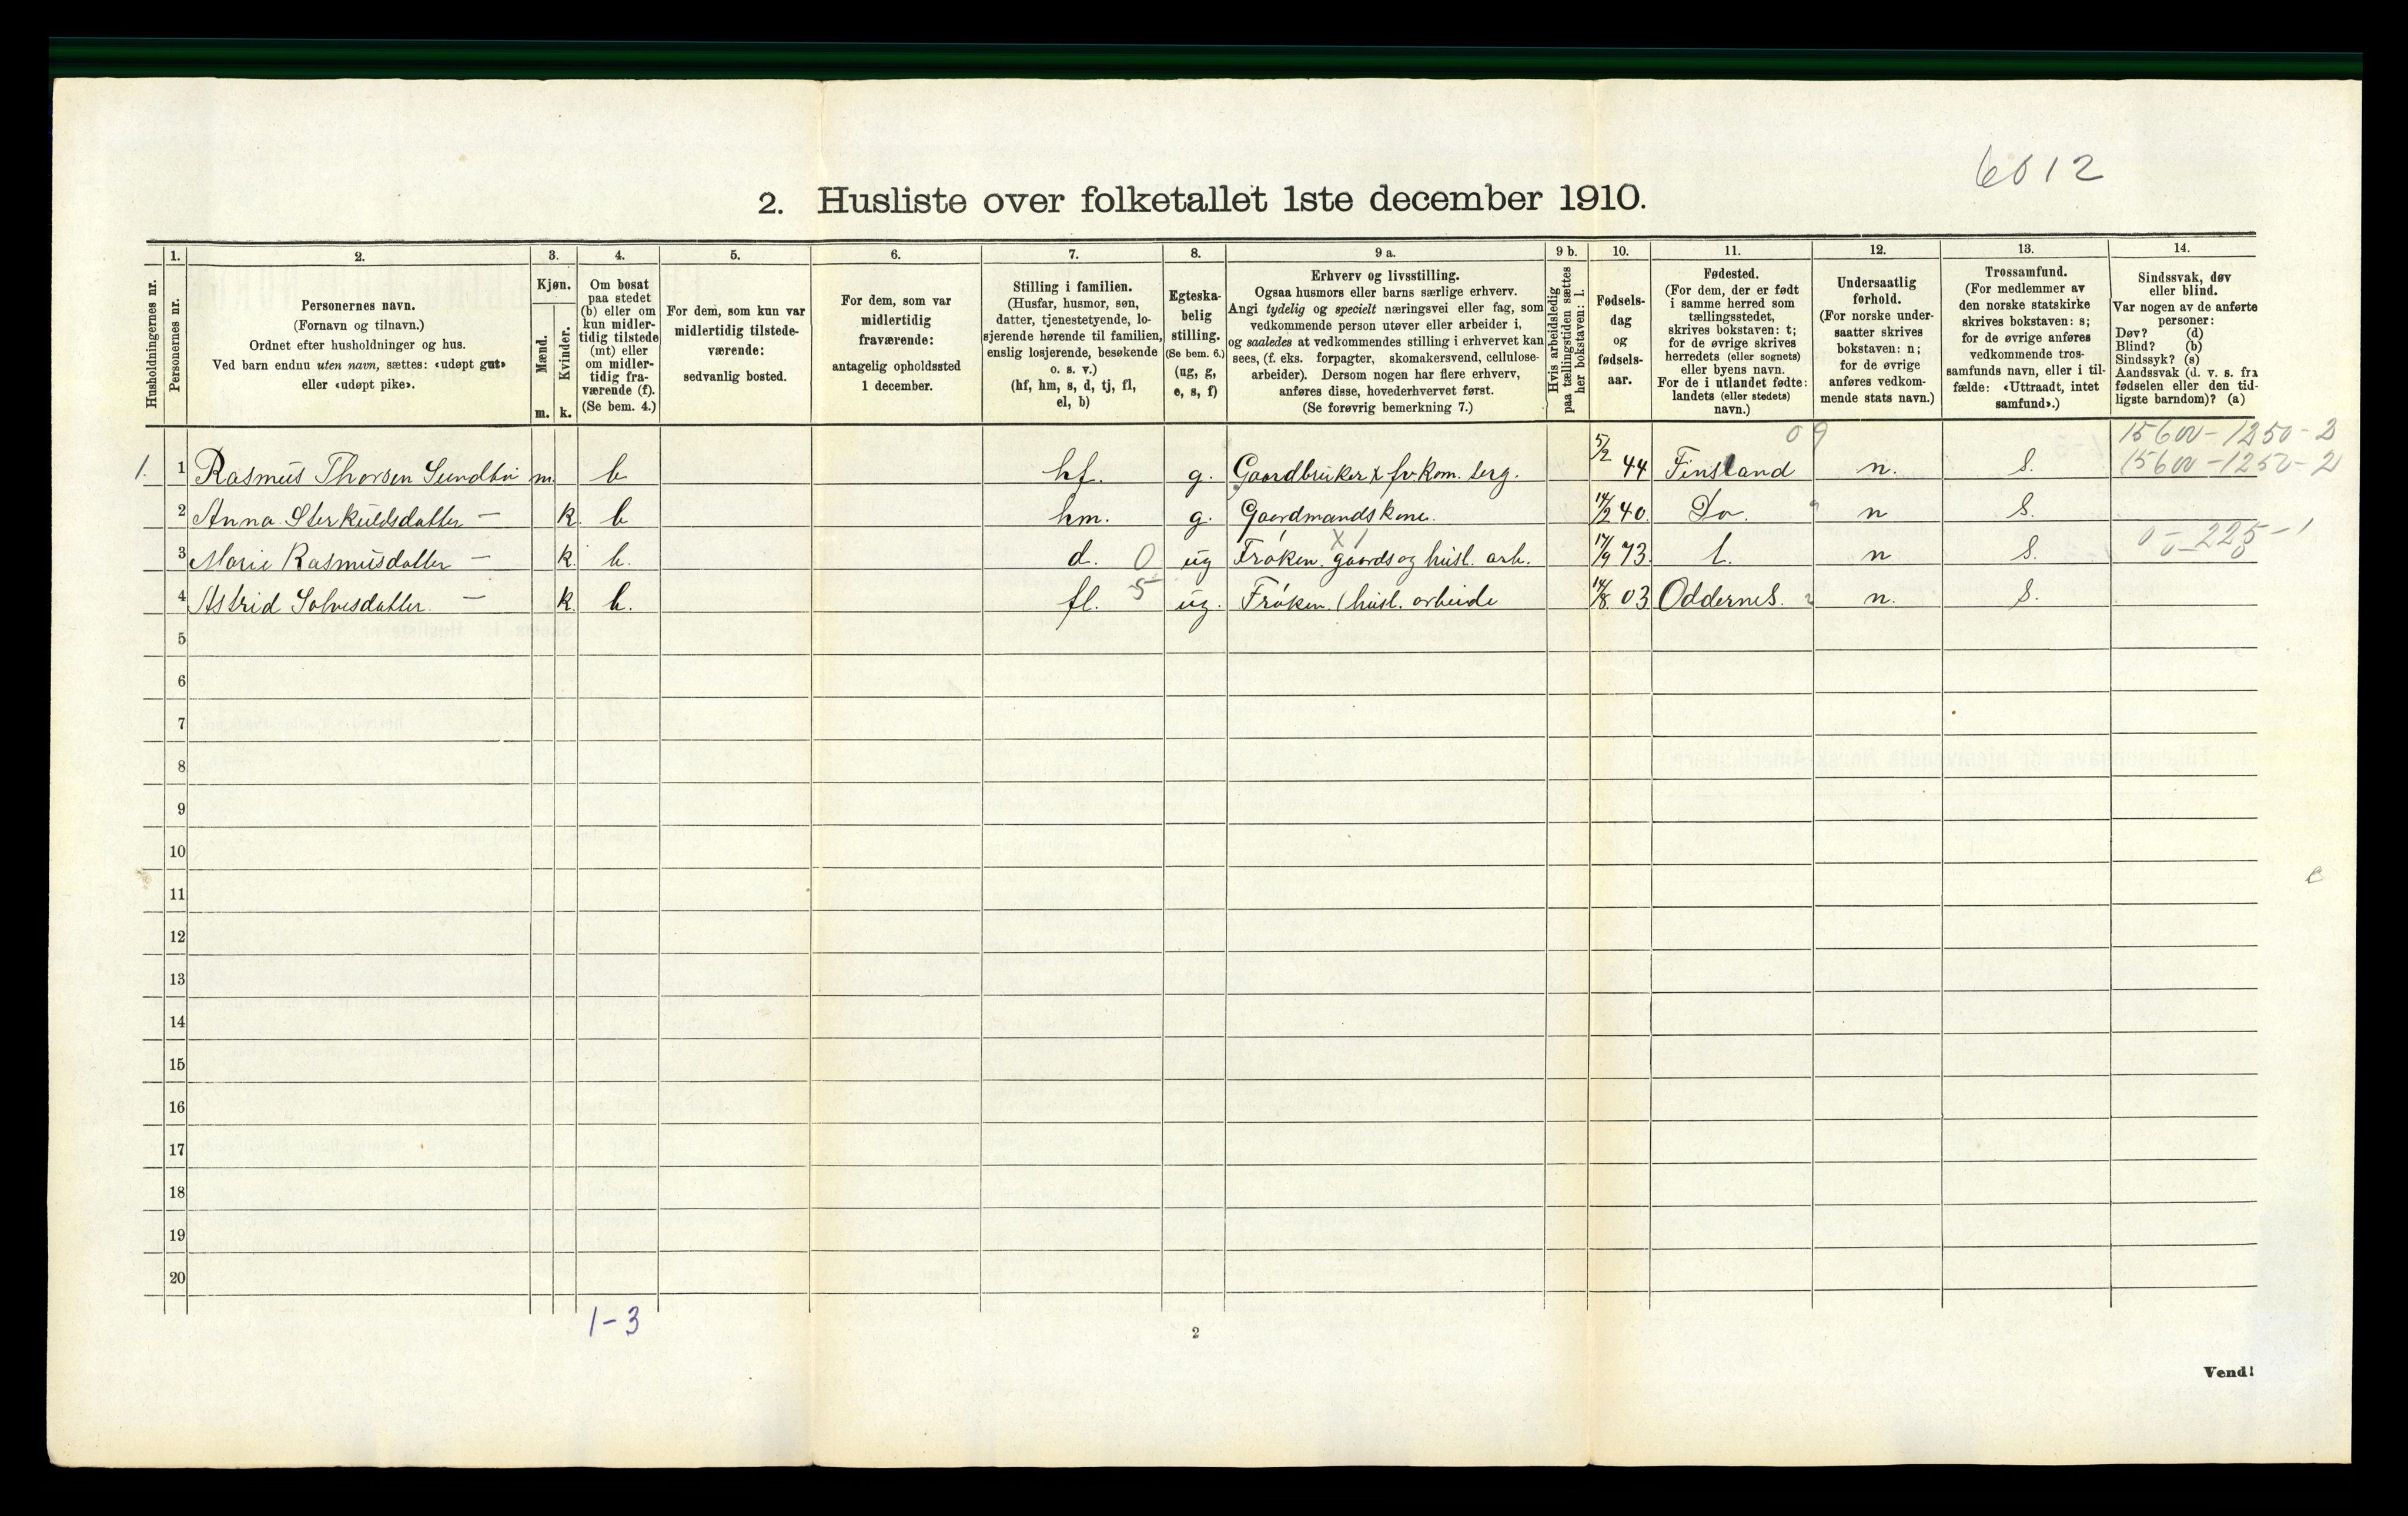 6012
2. Husliste over folketallet 1ste december 1910.
Husholdningernes nr.
1. Personernes nr.
2. Personernes navn.
(Fornavn og tilnavn.)
Ordnet efter husholdninger og hus.
Ved barn endnu uten navn, sættes: «udøpt gut»
eller «udøpt pike».
3. Kjøn.
Mænd. m.
Kvinder. k.
4. Om bosat
paa stedet
(b) eller om
kun midler-
tidig tilstede
(mt) eller
om midler-
tidig fra-
værende (f).
(Se bem. 4.)
5. For dem, som kun var
midlertidig tilstede-
værende:
sedvanlig bosted.
6. For dem, som var
midlertidig
fraværende:
antagelig opholdssted
1 december.
7. Stilling i familien.
(Husfar, husmor, søn,
datter, tjenestetyende, lo-
sjerende hørende til familien,
enslig losjerende, besøkende
o. s. v.)
(hf, hm, s, d, tj, fl,
el, b)
8. Egteska-
belig
stilling.
(Se bem. 6.)
(ug, g,
e, s, f)
9 a. Erhverv og livsstilling.
Ogsaa husmors eller barns særlige erhverv.
Angi tydelig og specielt næringsvei eller fag, som
vedkommende person utøver eller arbeider i,
og saaledes at vedkommendes stilling i erhvervet kan
sees, (f. eks. forpagter, skomakersvend, cellulose-
arbeider). Dersom nogen har flere erhverv,
anføres disse, hovederhvervet først.
(Se forøvrig bemerkning 7.)
9 b. Hvis arbeidsledig
paa tællingstiden sættes
her bokstaven: l.
10. Fødsels-
dag
og
fødsels-
aar.
11. Fødested.
(For dem, der er født
i samme herred som
tællingsstedet,
skrives bokstaven: t;
for de øvrige skrives
herredets (eller sognets)
eller byens navn.
For de i utlandet fødte:
landets (eller stedets)
navn.)
12. Undersaatlig
forhold.
(For norske under-
saatter skrives
bokstaven: n;
for de øvrige
anføres vedkom-
mende stats navn.)
13. Trossamfund.
(For medlemmer av
den norske statskirke
skrives bokstaven: s;
for de øvrige anføres
vedkommende tros-
samfunds navn, eller i til-
fælde: «Uttraadt, intet
samfund».)
14. Sindssvak, døv
eller blind.
Var nogen av de anførte
personer:
Døv? (d)
Blind? (b)
Sindssyk? (s)
Aandssvak (d. v. s. fra
fødselen eller den tid-
ligste barndom)? (a)
09 15600-1250-2
1. 1 Rasmus Thorsen m. b. hf. g. Gaardbruker x fv. kom. 5/2 44 Finsland n. S. 15600-1250-2
2 Anna Sterkuldsdatter — k. b hm. g. Gaardmandskone. 14/2 40. Do. n S.
3 Marie Rasmusdatter — k. b. d. 0 ug Frøken. gaards og husl. arb. 17/9 73. t. n S. 0-225-1
4 Astrid Solvesdatter. — k. b. fl. 5 ug. Frøken. husl. arbeide 14/8 03 Oddernes. n. S.
5
6
7
8
9
10
11
12
13
14
15
16
17
18
19
20
1-3
2
Vend!